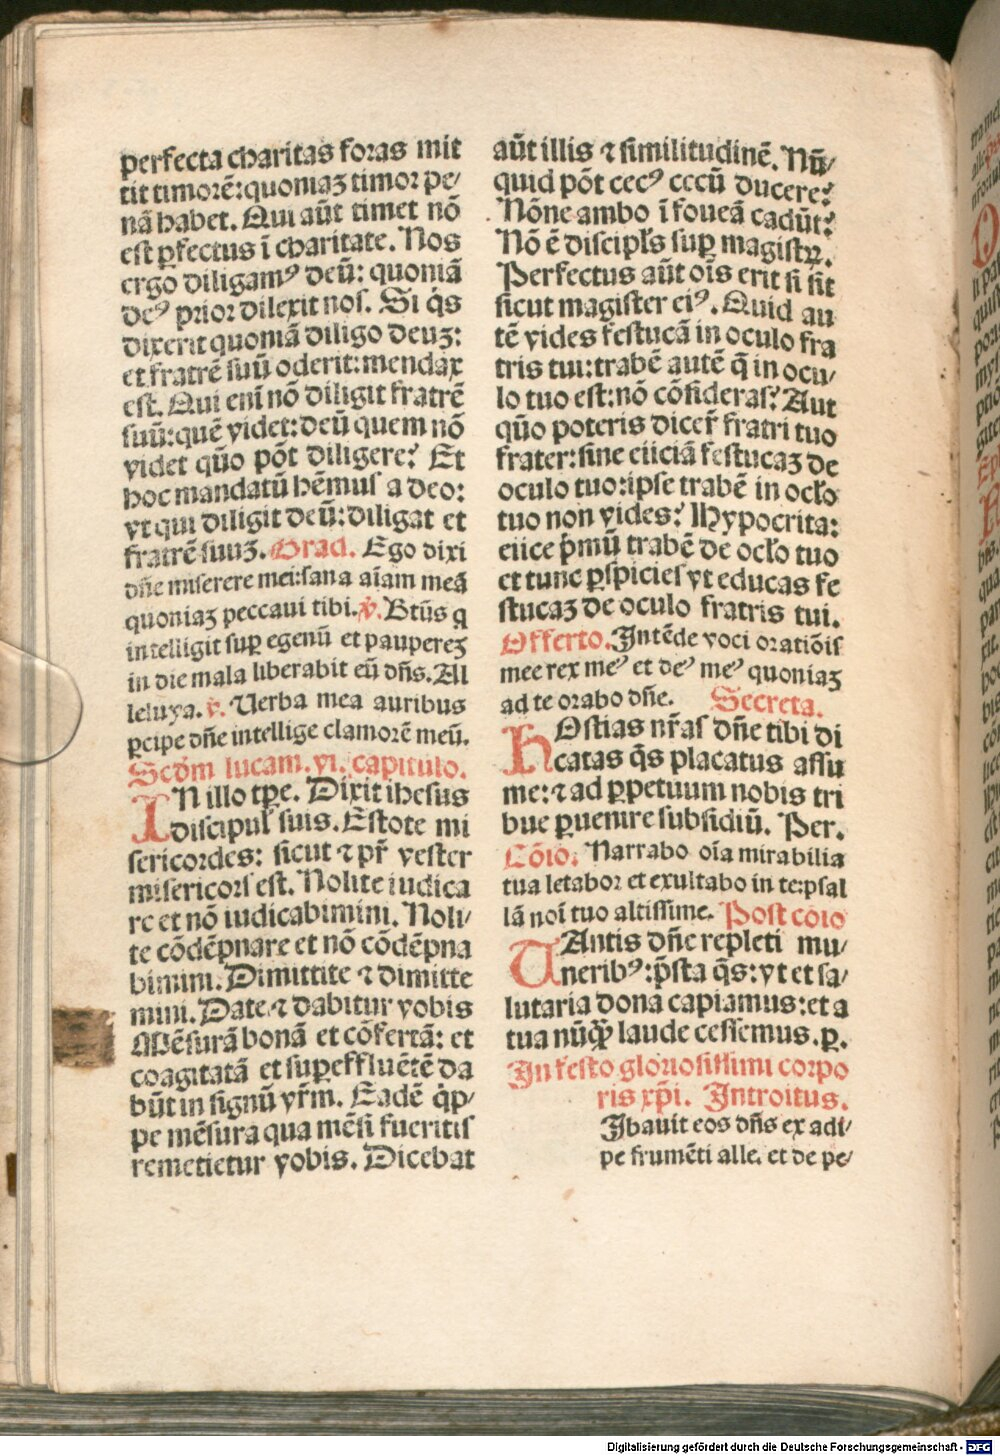 perfecta charitas foras mit
tit timorē:quoniaꝫ timor pe/
nā habet. Qui aūt timet nō
est ꝑfectus ī charitate. Nos
ergo diligamꝰ deū: quoniā
deꝰ prior dilexit nos. Si q̇s
dixerit quoniā diligo deuꝫ:
et fratrē suū oderit:mendax
est. Qui enī nō diligit fratrē
suū:quē videt:deū quem nō
videt qūo pōt diligere? Et
hoc mandatū hēmus a deo:
vt qui diligit deū:diligat et
fratrē suuꝫ. Grad. Ego dixi
dñe miserere mei:sana aīam meā
quoniaꝫ peccaui tibi. v̇. Btūs q
intelligit suꝑ egenū et paupereꝫ
in die mala liberabit eū dñs. Al
leluya. v̇. Uerba mea auribus
ꝑcipe dñe intellige clamorē meū.
Scḋm lucam. vi. capitulo.
IN illo tꝑe. Dixit ihesus
discipul̓ suis. Estote mi
sericordes: sicut ⁊ pr̄ vester
misericors est. Nolite iudica
re et nō iudicabimini. Noli/
te cōdēpnare et nō cōdēpna
bimini. Dimittite ⁊ dimitte
mini. Date ⁊ dabitur vobis
Mēsurā bonā et cōfertā: et
coagitatā et suꝑeffluētē da
būt in signū vr̄m. Eadē q̇p/
pe mēsura qua mēsi fueritis
remetietur vobis. Dicebat
aūt illis ⁊ similitudinē. Nū/
quid pōt cecꝰ cecū ducere?
Nōne ambo ī foueā cadūt?
Nō ē discipl̓s suꝑ magistꝝ.
Perfectus aūt oīs erit si sit
sicut magister eiꝰ. Quid au
tē vides festucā in oculo fra
tris tui:trabē autē q̄ in ocu/
lo tuo est:nō cōsideras? Aut
qūo poteris dicer̄ fratri tuo
frater:sine eiiciā festucaꝫ de
oculo tuo:ipse trabē in ocl̓o
tuo non vides? Hypocrita:
eiice p̄mū trabē de ocl̓o tuo
et tunc ꝑspicies vt educas fe
stucaꝫ de oculo fratris tui.
Offerto. Intēde voci oratiōis
mee rex meꝰ et deꝰ meꝰ quoniaꝫ
ad te orabo dñe. Secreta.
HOstias nr̄as dñe tibi di
catas q̄s placatus assu
me:⁊ ad ꝑpetuum nobis tri
bue ꝑuenire subsidiū. Per.
Cōio. Narrabo oīa mirabilia
tua letabor et exultabo in te:psal
lā noī tuo altissime. Post cōio
TAntis dñe repleti mu/
neribꝰ:p̄sta q̄s:vt et sa/
lutaria dona capiamus:et a
tua nūꝙ̄ laude cessemus. ꝑ.
In festo gloriosissimi corpo
ris xp̄i. Introitus.
Ibauit eos dñs ex adi/
pe frumēti alle. et de pe/
Digitalisierung gefördert durch die Deutsche Forschungsgemeinschaft - DFG